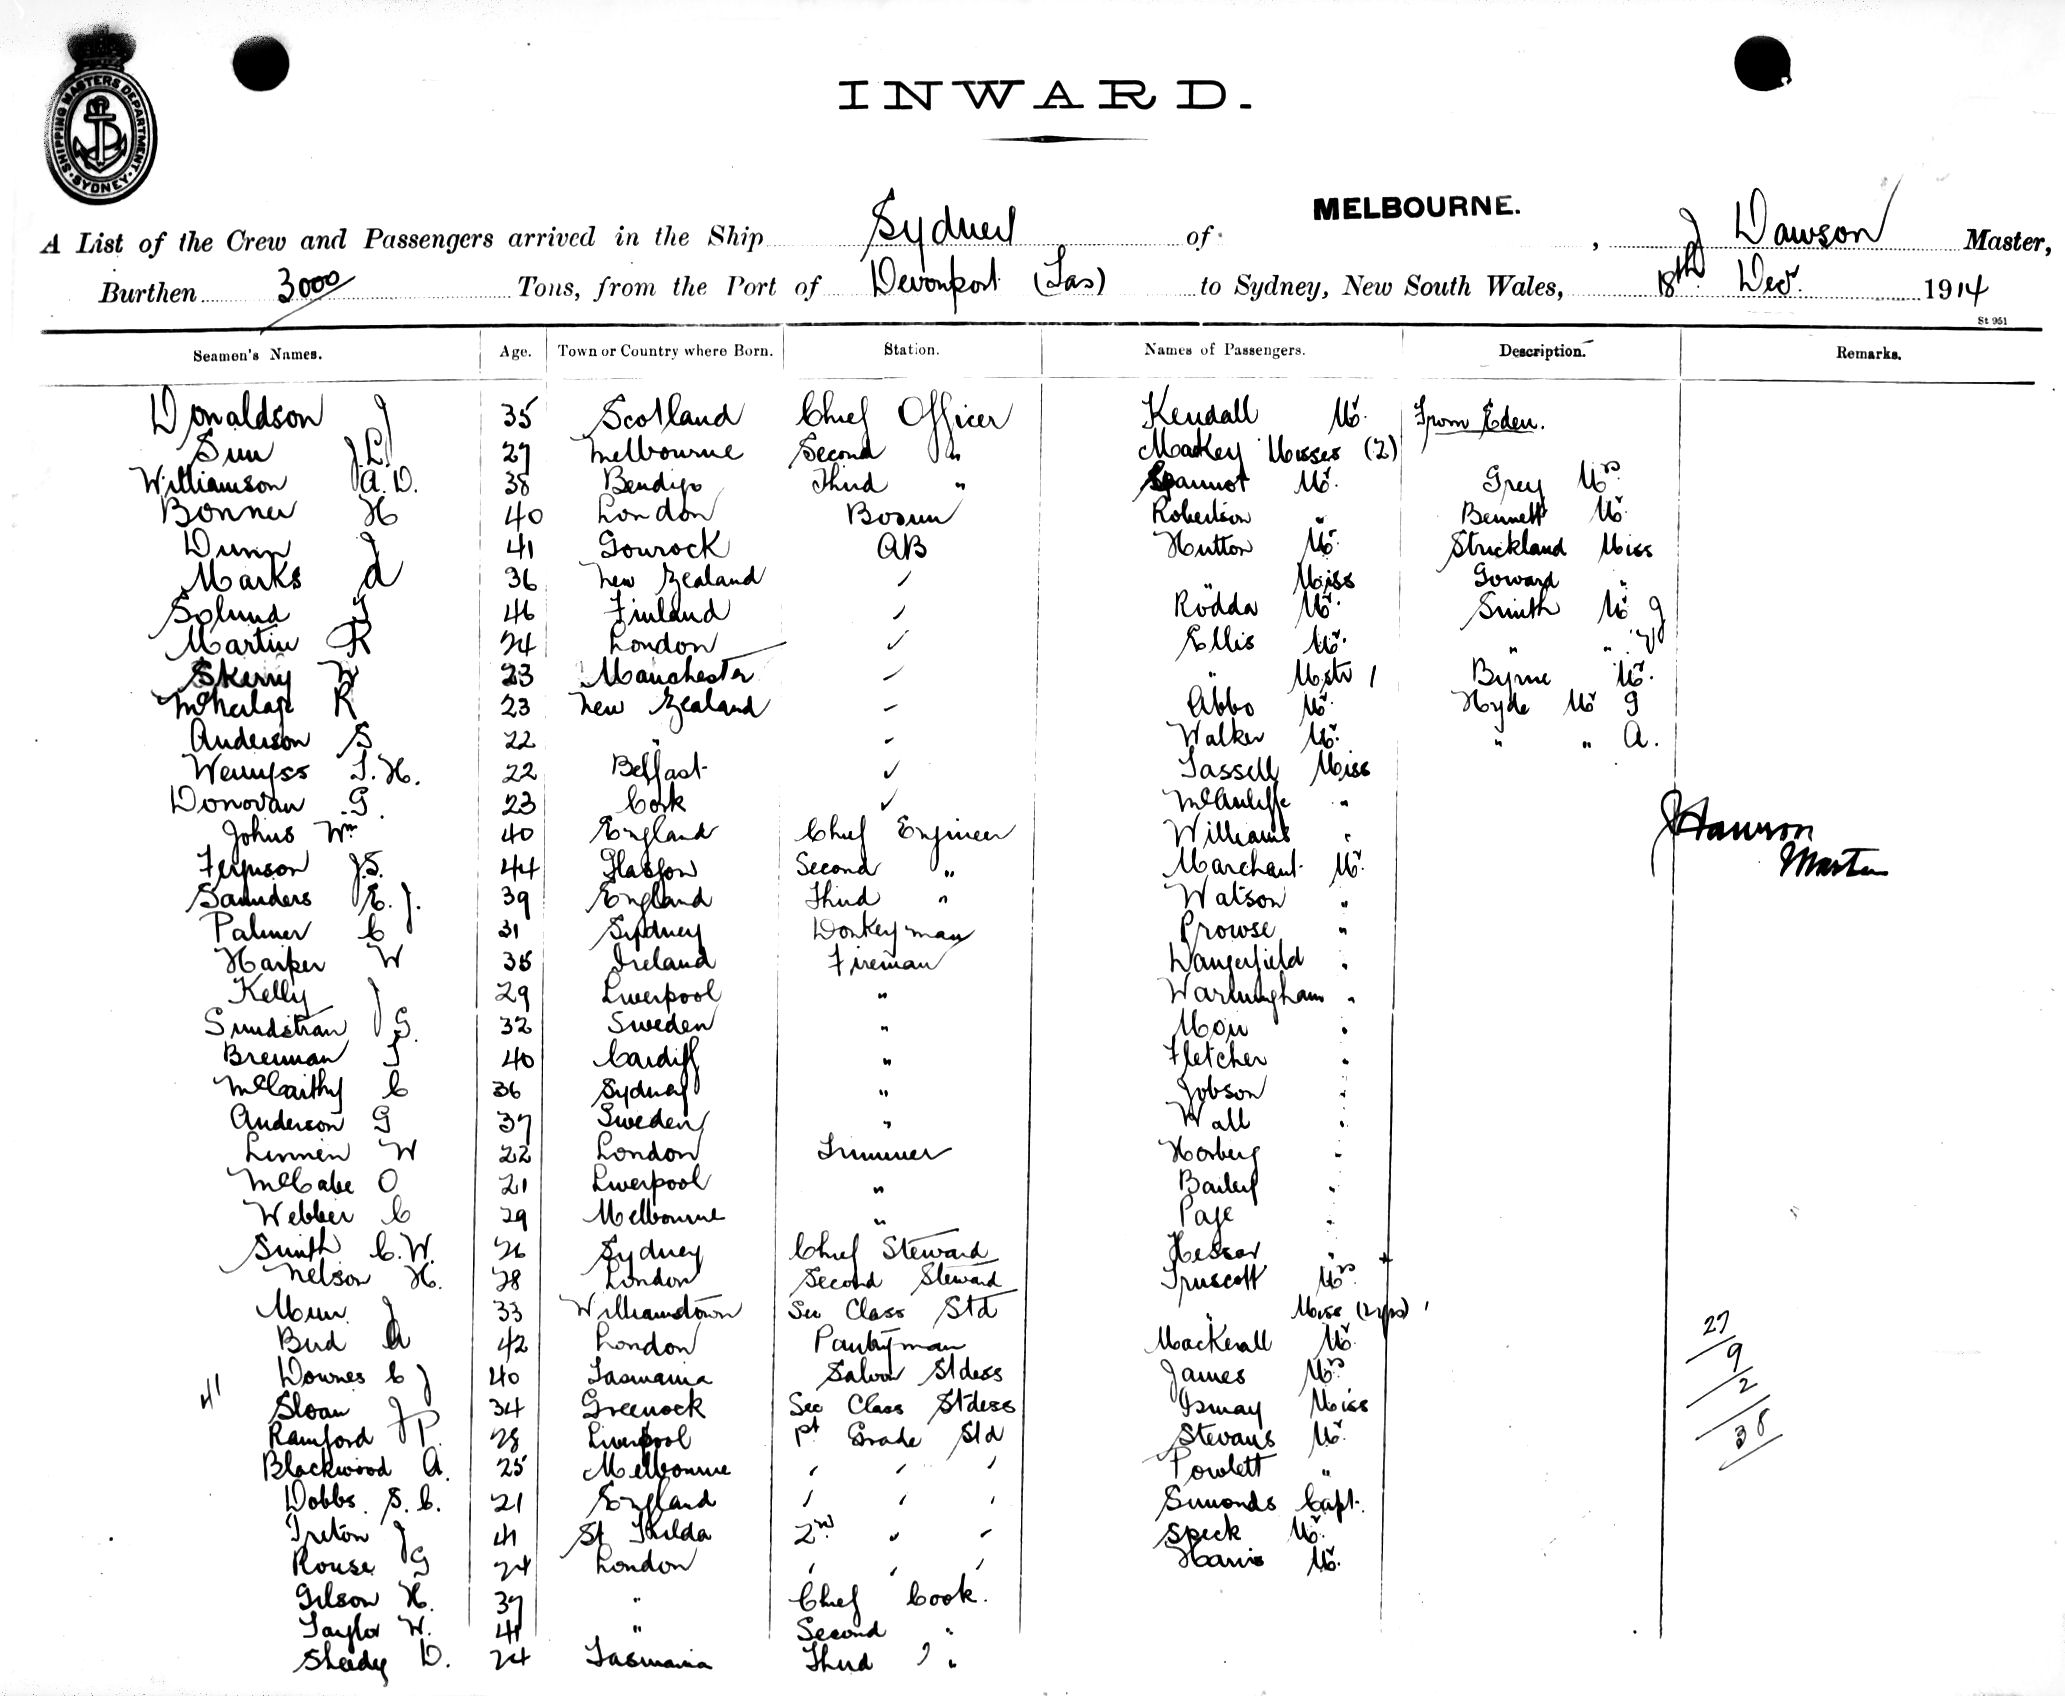 SHIPPING MASTERS DEPARTMENT
SYDNEY
INWARD.
MELBOURNE.
A List of the Crew and Passengers arrived in the Ship Sydney of , J Dawson Master,
Burthen 3000 Tons, from the Port of Devonport (Tas) to Sydney, New South Wales, 18th Decr. 1914
St 951
Seamen's Names. Age. Town or Country where Born. Station. Names of Passengers. Description. Remarks.
Donaldson J 35 Scotland Chief Officer Kendall Mr. From Eden.
J.L. 27 Melbourne Second " Mackey Misses (2)
Williamson A.D. 38 Bendigo Third " Mr. Grey Mrs
Bonner H 40 London Bosun Robertson " Bennett Mr
Dunn J 41 Gourock AB Hutton Mr. Strickland Miss
Marks A 36 New Zealand " Miss Goward "
Solund J 46 Finland Rodda Mr. Smith Mr J
Martin R 24 London Ellis Mr. " "
Skerry W 23 Manchester " Mstr 1 Byrne Mr.
R 23 New Zealand Abbo Mr. Hyde Mr G
Anderson S 22 " Walker Mr. " " A.
Wemyss T.H. 22 Belfast Tassell Miss
Donovan G. 23 Cork McAuliffe "
Johns Wm 40 England Chief Engineer Williams " J Dawson
Ferguson J.S. 44 Glasgow Second " Marchant Mr. Master
Saunders E.J. 39 England Third " Watson "
Palmer C 31 Sydney Donkeyman Prowse "
Harper W 35 Ireland Fireman Dangerfield "
Kelly J 29 Liverpool " Warmingham "
Sundstran G. 32 Sweden " Moir "
Brennan T 40 Cardiff " Fletcher "
McCarthy C 36 Sydney " Jobson "
Anderson G 37 Sweden " Wall "
Linnen W 22 London Trimmer Horberg "
McCabe O 21 Liverpool " Bailey "
Webber C 29 Melbourne " Page "
Smith C.W. 26 Sydney Chief Steward Hessor "
Nelson H. 28 London Second Steward Truscott Mrs
J 33 Williamstown Sec Class Std " Miss (2yrs) 1
Bird A 42 London Pantryman Mackerall Mr.
Downes C 40 Tasmania Saloon Stdess James Mrs
41 Sloan J 34 Greenock Sec Class Stdess Ismay Miss
Ramford P. 28 Liverpool 1st Grade Std Stevans Mr.
Blackwood A. 25 Melbourne " " " Powlett "
Dobbs S.C. 21 England " " " Simonds Capt.
Ireton J 41 St Kilda 2nd " " Speck Mr.
Rouse G 24 London " " " Harris Mr.
Gilson H. 37 " Chief Cook.
Taylor W. 41 " Second "
Sheedy D. 24 Tasmania Third "
27
9
2
38